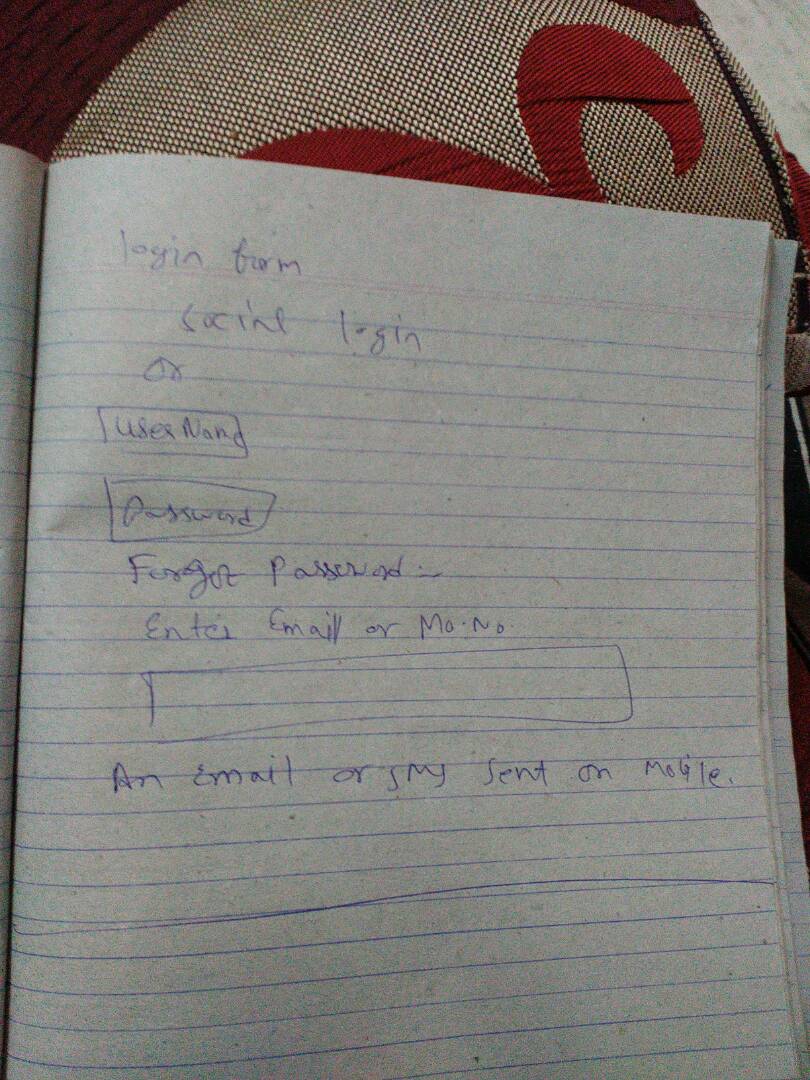 login form
social login
or
UserName
Password
Forgot Password :-
Enter Email or Mo. No.
An Email or SMS sent on Mobile.